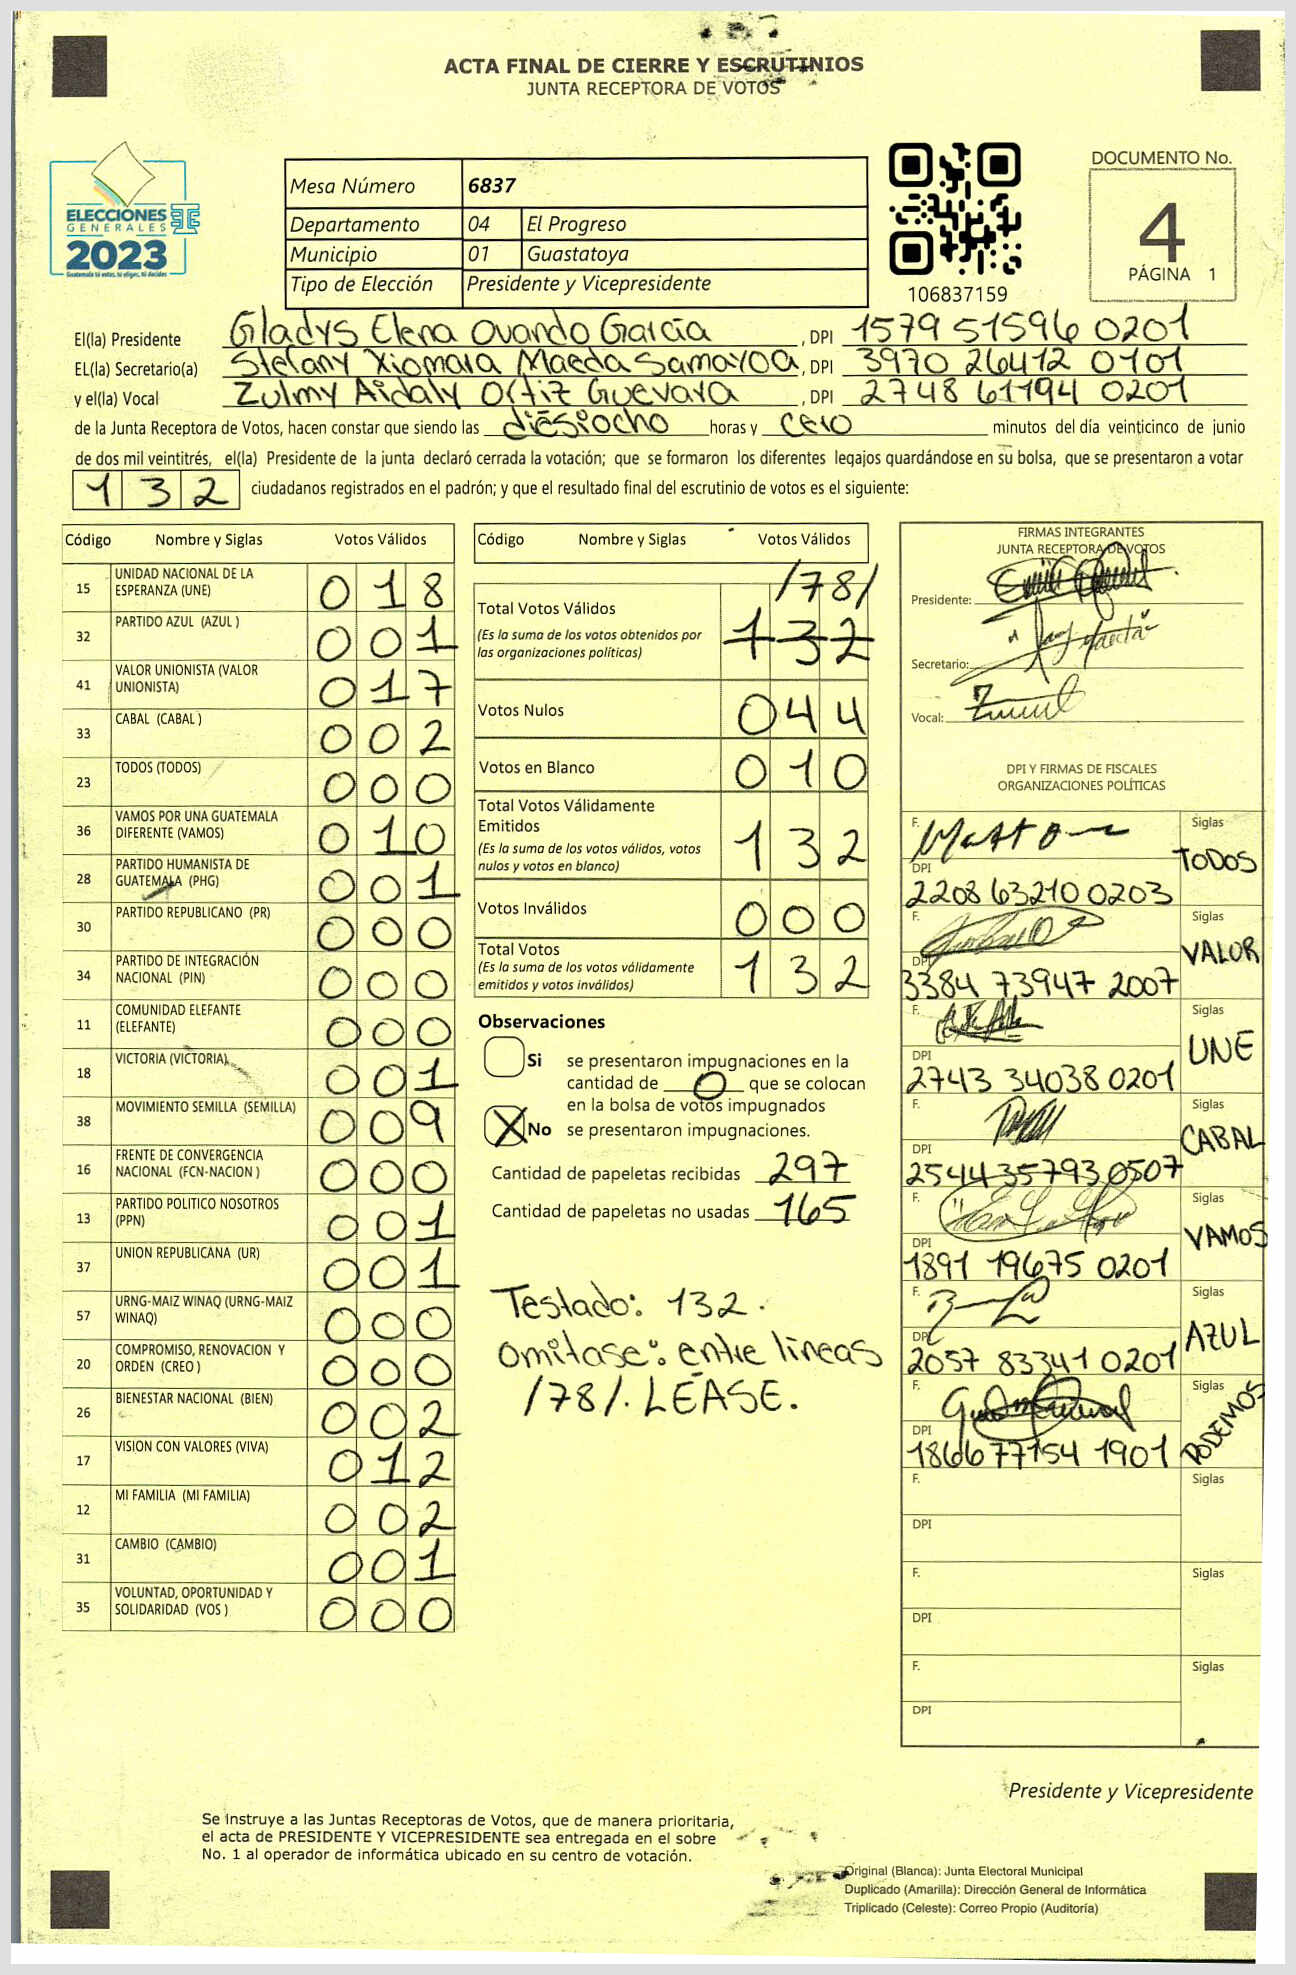 ACTA FINAL DE CIERRE Y ESCRUTINIOS
JUNTA RECEPTORA DE VOTOS
ELECCIONES
GENERALES
2023
Guatemala tú votas, tú eliges, tú decides
Mesa Número 6837
Departamento 04 El Progreso
Municipio 01 Guastatoya
Tipo de Elección Presidente y Vicepresidente
106837159
DOCUMENTO No.
4
PÁGINA 1
El(la) Presidente Gladys Elena Ovando García, DPI 1579 51596 0201
EL(la) Secretario(a) Stefany Xiomara Maeda Samayoa, DPI 3970 26412 0101
y el(la) Vocal Zulmy Aidaly Ortiz Guevara, DPI 2748 61194 0201
de la Junta Receptora de Votos, hacen constar que siendo las diesiocho horas y cero minutos del día veinticinco de junio
de dos mil veintitrés, el(la) Presidente de la junta declaró cerrada la votación; que se formaron los diferentes legajos quardándose en su bolsa, que se presentaron a votar
132 ciudadanos registrados en el padrón; y que el resultado final del escrutinio de votos es el siguiente:
Código Nombre y Siglas Votos Válidos
15 UNIDAD NACIONAL DE LA ESPERANZA (UNE) 018
32 PARTIDO AZUL (AZUL ) 001
41 VALOR UNIONISTA (VALOR UNIONISTA) 017
33 CABAL (CABAL ) 002
23 TODOS (TODOS) 000
36 VAMOS POR UNA GUATEMALA DIFERENTE (VAMOS) 010
28 PARTIDO HUMANISTA DE GUATEMALA (PHG) 001
30 PARTIDO REPUBLICANO (PR) 000
34 PARTIDO DE INTEGRACIÓN NACIONAL (PIN) 000
11 COMUNIDAD ELEFANTE (ELEFANTE) 000
18 VICTORIA (VICTORIA) 001
38 MOVIMIENTO SEMILLA (SEMILLA) 009
16 FRENTE DE CONVERGENCIA NACIONAL (FCN-NACION ) 000
13 PARTIDO POLITICO NOSOTROS (PPN) 001
37 UNION REPUBLICANA (UR) 001
57 URNG-MAIZ WINAQ (URNG-MAIZ WINAQ) 000
20 COMPROMISO, RENOVACION Y ORDEN (CREO ) 000
26 BIENESTAR NACIONAL (BIEN) 002
17 VISION CON VALORES (VIVA) 012
12 MI FAMILIA (MI FAMILIA) 002
31 CAMBIO (CAMBIO) 001
35 VOLUNTAD, OPORTUNIDAD Y SOLIDARIDAD (VOS ) 000
Código Nombre y Siglas Votos Válidos
/78/
Total Votos Válidos 132
(Es la suma de los votos obtenidos por
las organizaciones políticas)
Votos Nulos 044
Votos en Blanco 010
Total Votos Válidamente
Emitidos 132
(Es la suma de los votos válidos, votos
nulos y votos en blanco)
Votos Inválidos 000
Total Votos 132
(Es la suma de los votos válidamente
emitidos y votos inválidos)
Observaciones
Si se presentaron impugnaciones en la
cantidad de 0 que se colocan
en la bolsa de votos impugnados
X No se presentaron impugnaciones.
Cantidad de papeletas recibidas 297
Cantidad de papeletas no usadas 165
Testado: 132.
omitase: entre lineas
/78/. LEASE.
FIRMAS INTEGRANTES
JUNTA RECEPTORA DE VOTOS
Presidente:
Secretario:
Vocal:
DPI Y FIRMAS DE FISCALES
ORGANIZACIONES POLÍTICAS
F. Siglas TODOS
DPI 2208 63210 0203
F. Siglas VALOR
DPI 3384 73947 2007
F. Siglas UNE
DPI 2743 34038 0201
F. Siglas CABAL
DPI 2544 35793 0507
F. Siglas VAMOS
DPI 1891 19675 0201
F. Siglas AZUL
DPI 2057 83341 0201
F. Siglas PODEMOS
DPI 1866 77154 1901
F. Siglas
DPI
F. Siglas
DPI
F. Siglas
DPI
Presidente y Vicepresidente
Se instruye a las Juntas Receptoras de Votos, que de manera prioritaria,
el acta de PRESIDENTE Y VICEPRESIDENTE sea entregada en el sobre
No. 1 al operador de informática ubicado en su centro de votación.
Original (Blanca): Junta Electoral Municipal
Duplicado (Amarilla): Dirección General de Informática
Triplicado (Celeste): Correo Propio (Auditoría)